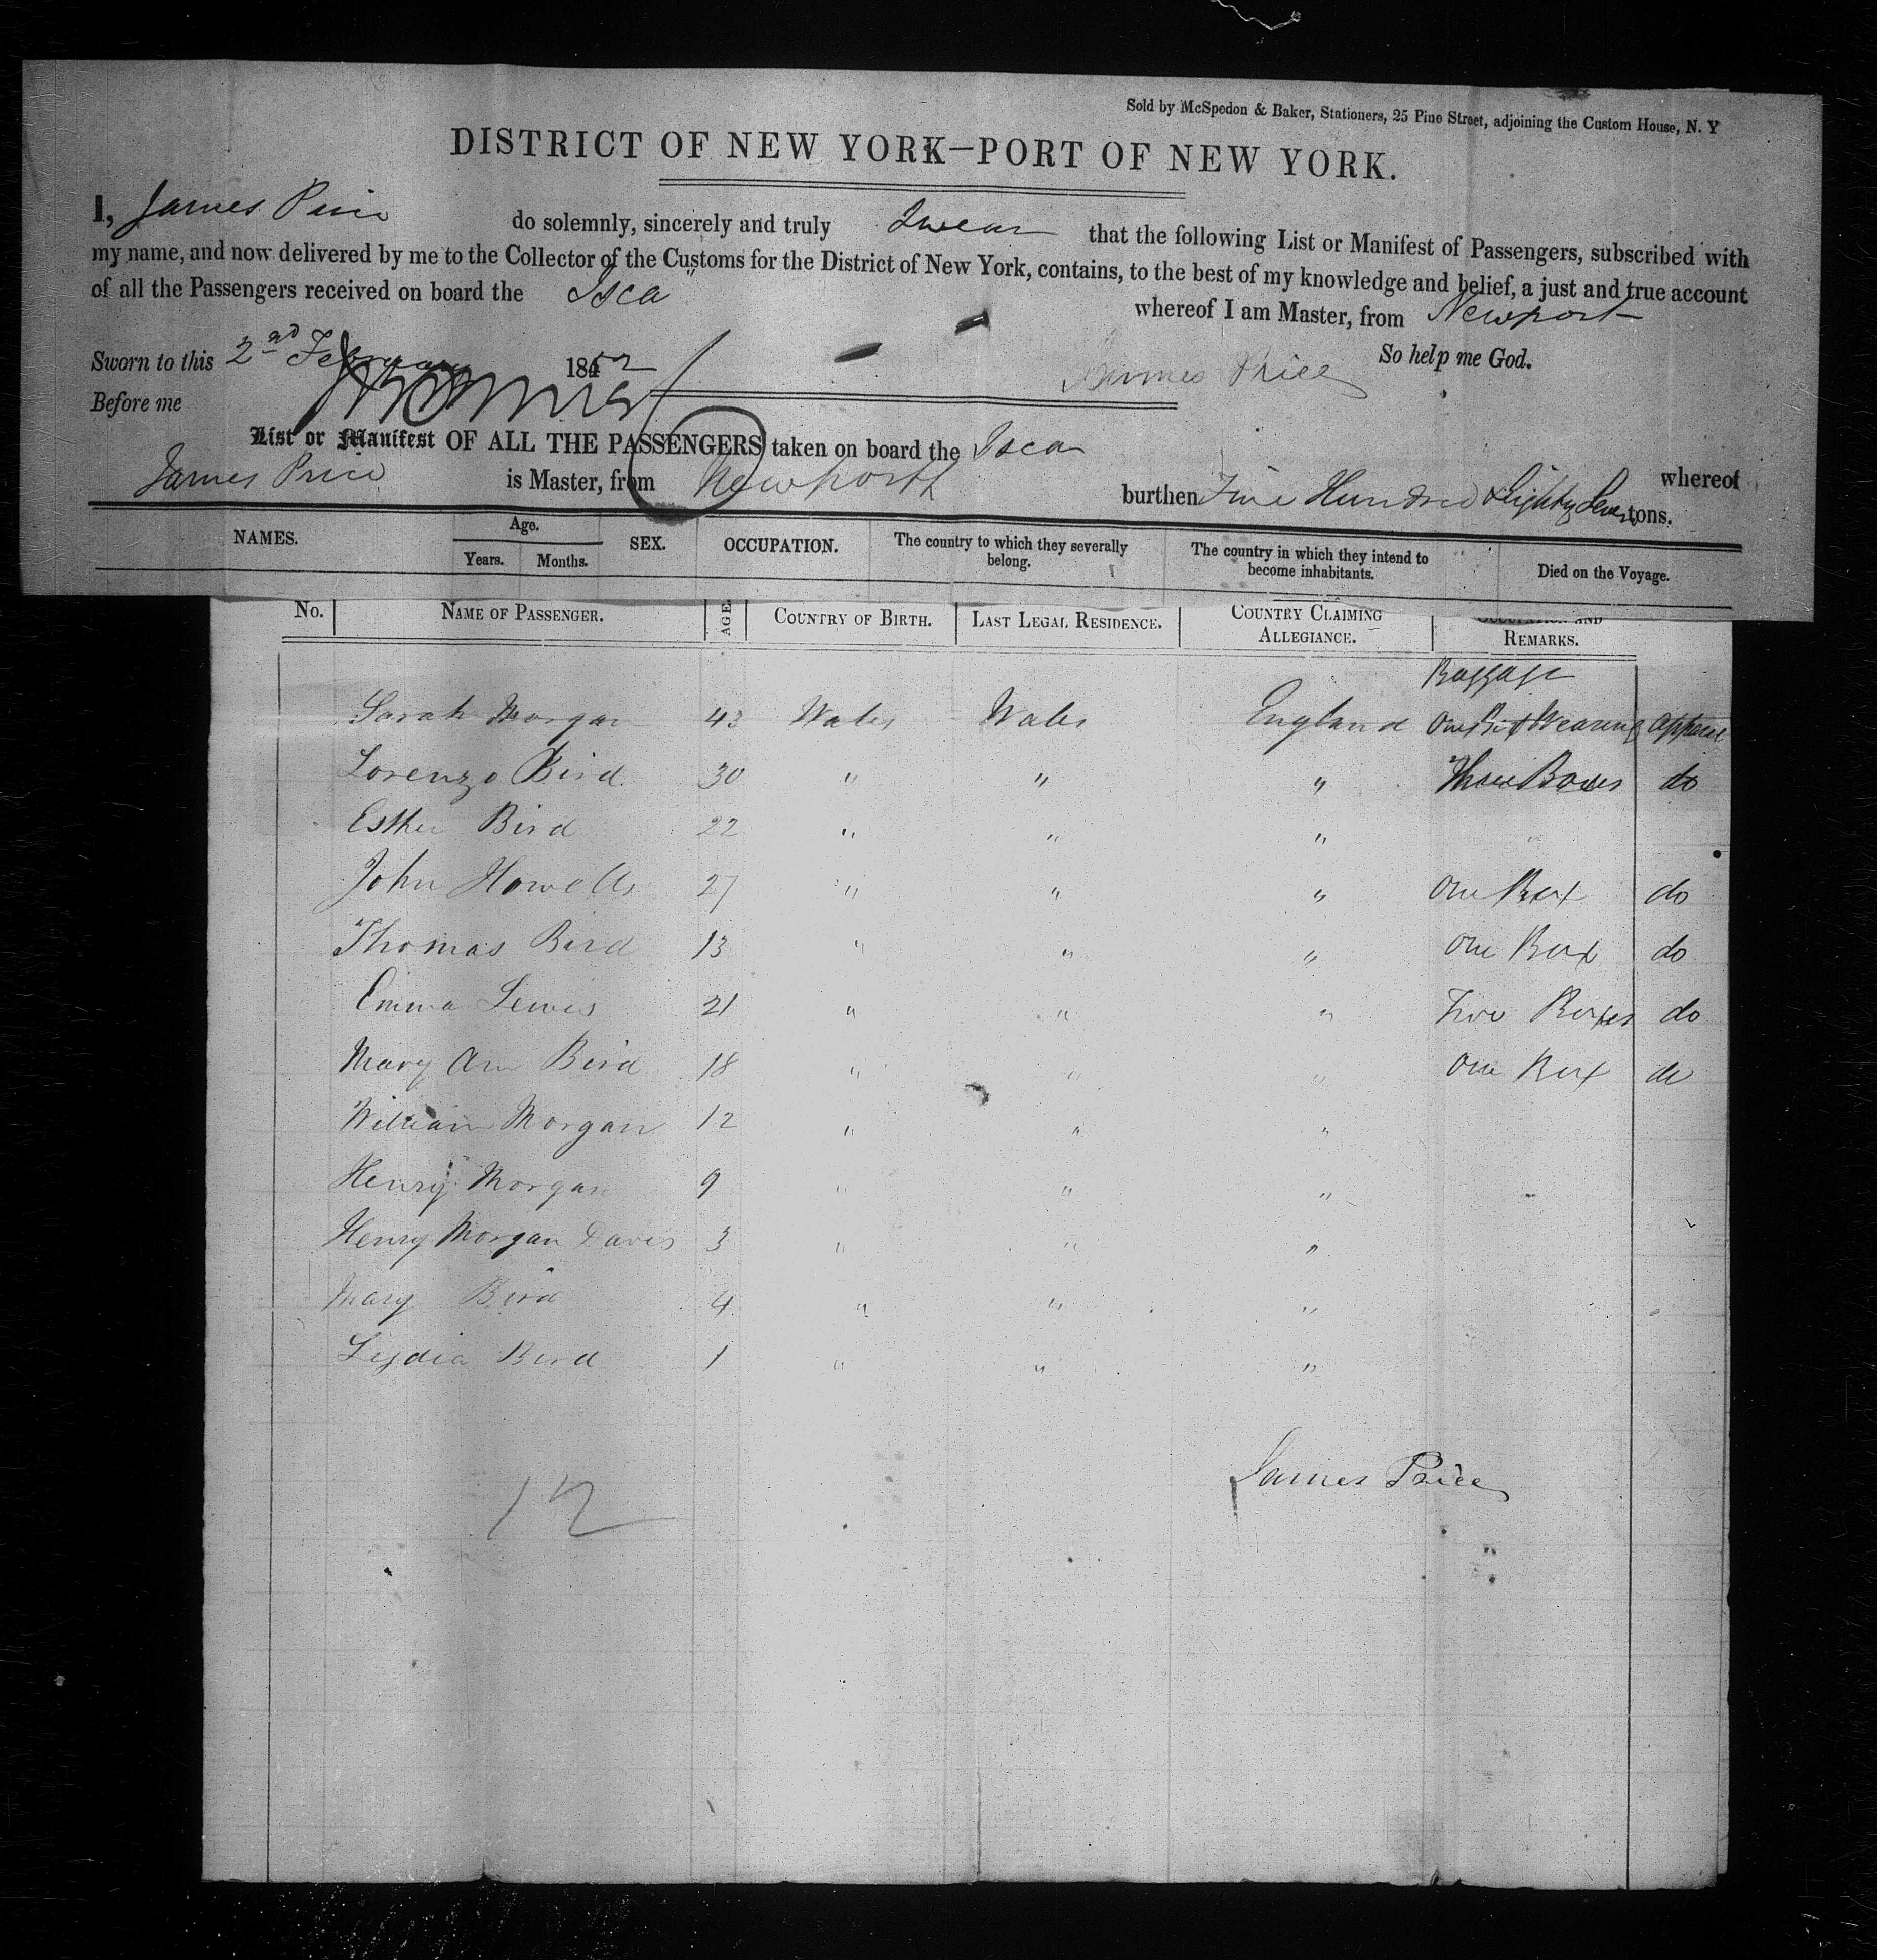 Sold by McSpedon & Baker, Stationers, 25 Pine Street, adjoining the Custom House, N. Y
DISTRICT OF NEW YORK—PORT OF NEW YORK.
I, James Price do solemnly, sincerely and truly Swear that the following List or Manifest of Passengers, subscribed with
my name, and now delivered by me to the Collector of the Customs for the District of New York, contains, to the best of my knowledge and belief, a just and true account
of all the Passengers received on board the "Isca" whereof I am Master, from Newport
So help me God.
Sworn to this 2nd February 1852 James Price
Before me
List or Manifest OF ALL THE PASSENGERS taken on board the Isca whereof
James Price is Master, from Newport burthen Five Hundred & Eighty Seven tons.
NAMES. Age. Years. Months. SEX. OCCUPATION. The country to which they severally belong. The country in which they intend to become inhabitants. Died on the Voyage.
No. NAME OF PASSENGER. AGE COUNTRY OF BIRTH. LAST LEGAL RESIDENCE. COUNTRY CLAIMING ALLEGIANCE. OCCUPATION AND REMARKS.
Baggage
Sarah Morgan 43 Wales Wales England One Box Wearing Apparel
Lorenzo Bird 30 " " " Three Boxes do
Esther Bird 22 " " " "
John Howells 27 " " " One Box do
Thomas Bird 13 " " " One Box do
Emma Lewis 21 " " " Two Boxes do
Mary Ann Bird 18 " " " One Box do
William Morgan 12 " " "
Henry Morgan 9 " " "
Henry Morgan Davis 3 " " "
Mary Bird 4 " " "
Lydia Bird 1 " " "
James Price
12